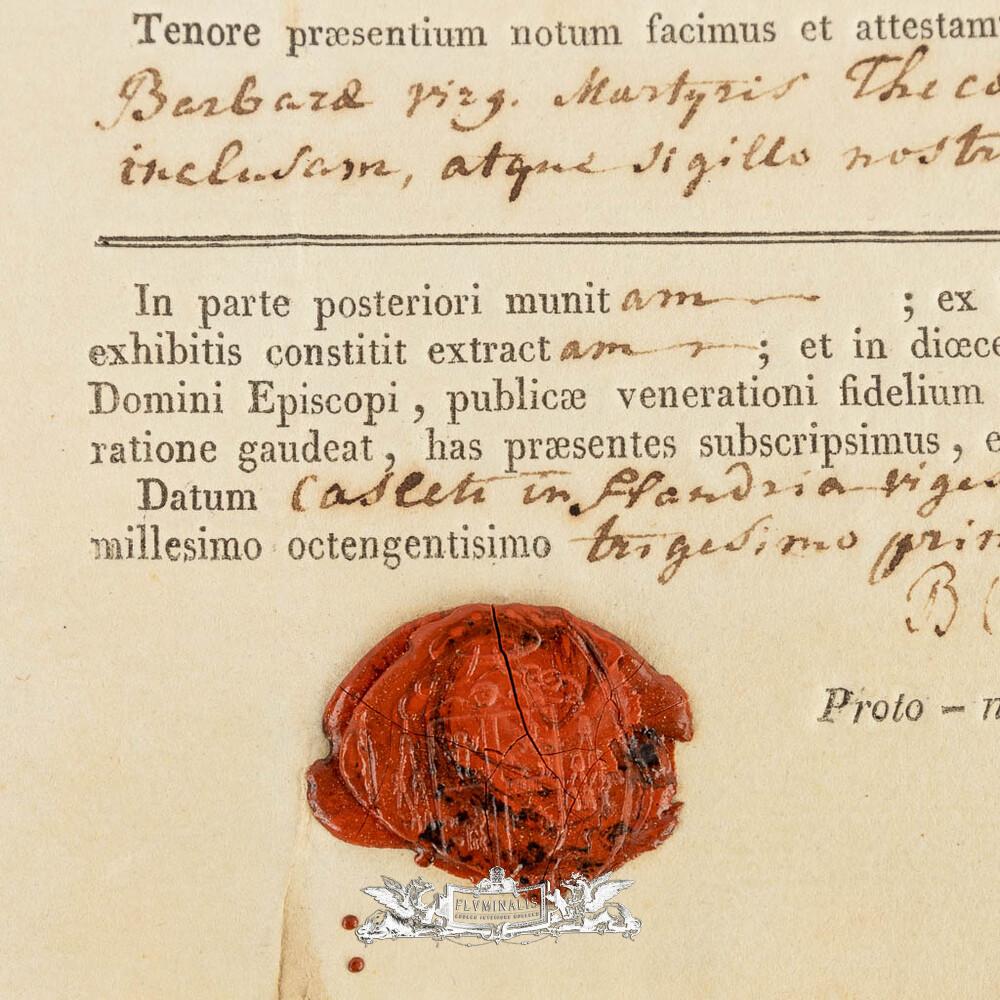 Tenore præsentium notum facimus et attestam
Barbaræ virg. Martyris Theca
inclusam, atque sigillo nostr
In parte posteriori munitam ; ex
exhibitis constitit extractam ; et in diœce
Domini Episcopi , publicæ venerationi fidelium
ratione gaudeat , has præsentes subscripsimus , e
Datum Casleti in Flandria viges
millesimo octengentisimo trigesimo prim
B
Proto – n
FLVMINALIS